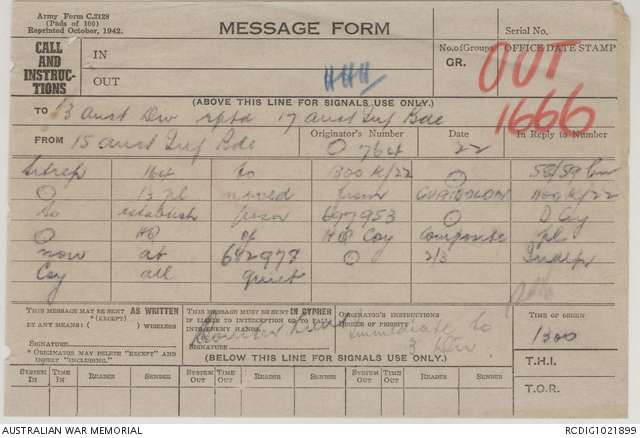 Army Form C.2128
(Pads of 100)
Reprinted October, 1942.
MESSAGE FORM
Serial No.
CALL AND INSTRUC-TIONS
IN
OUT
No. of Groups
GR.
OFFICE DATE STAMP
OUT
1666
(ABOVE THIS LINE FOR SIGNALS USE ONLY.)
TO 3 Aust Div rptd 17 Aust Inf Bde
FROM 15 Aust Inf Bde
Originator's Number
O 764
Date
22
In Reply to Number
Sitrep 164 to 1300 K/22 O 58/59 Bn
O 13 Pl moved from 1100 K/22
to establish 697953 O D Coy
O HQ of HQ Coy Composite Pl
now at 682977 O 2/3 Indep
Coy all quiet
THIS MESSAGE MAY BE SENT AS WRITTEN
*(EXCEPT)
BY ANY MEANS: ( ) WIRELESS
SIGNATURE
* ORIGINATOR MAY DELETE "EXCEPT" AND INSERT "INCLUDING."
THIS MESSAGE MUST BE SENT IN CYPHER
IF LIABLE TO INTERCEPTION OR TO FALL INTO ENEMY HANDS.
SIGNATURE
ORIGINATOR'S INSTRUCTIONS
DEGREE OF PRIORITY
Immediate to
3 Div
TIME OF ORIGIN
1300
T.H.I.
T.O.R.
(BELOW THIS LINE FOR SIGNALS USE ONLY.)
SYSTEM IN TIME IN READER SENDER SYSTEM OUT TIME OUT READER SENDER SYSTEM OUT TIME OUT READER SENDER
AUSTRALIAN WAR MEMORIAL
RCDIG1021899